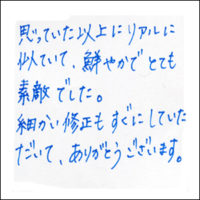 思っていた以上にリアルに
似ていて、鮮やかでとても
素敵でした。
細かい修正もすぐにしていた
だいて、ありがとうございます。